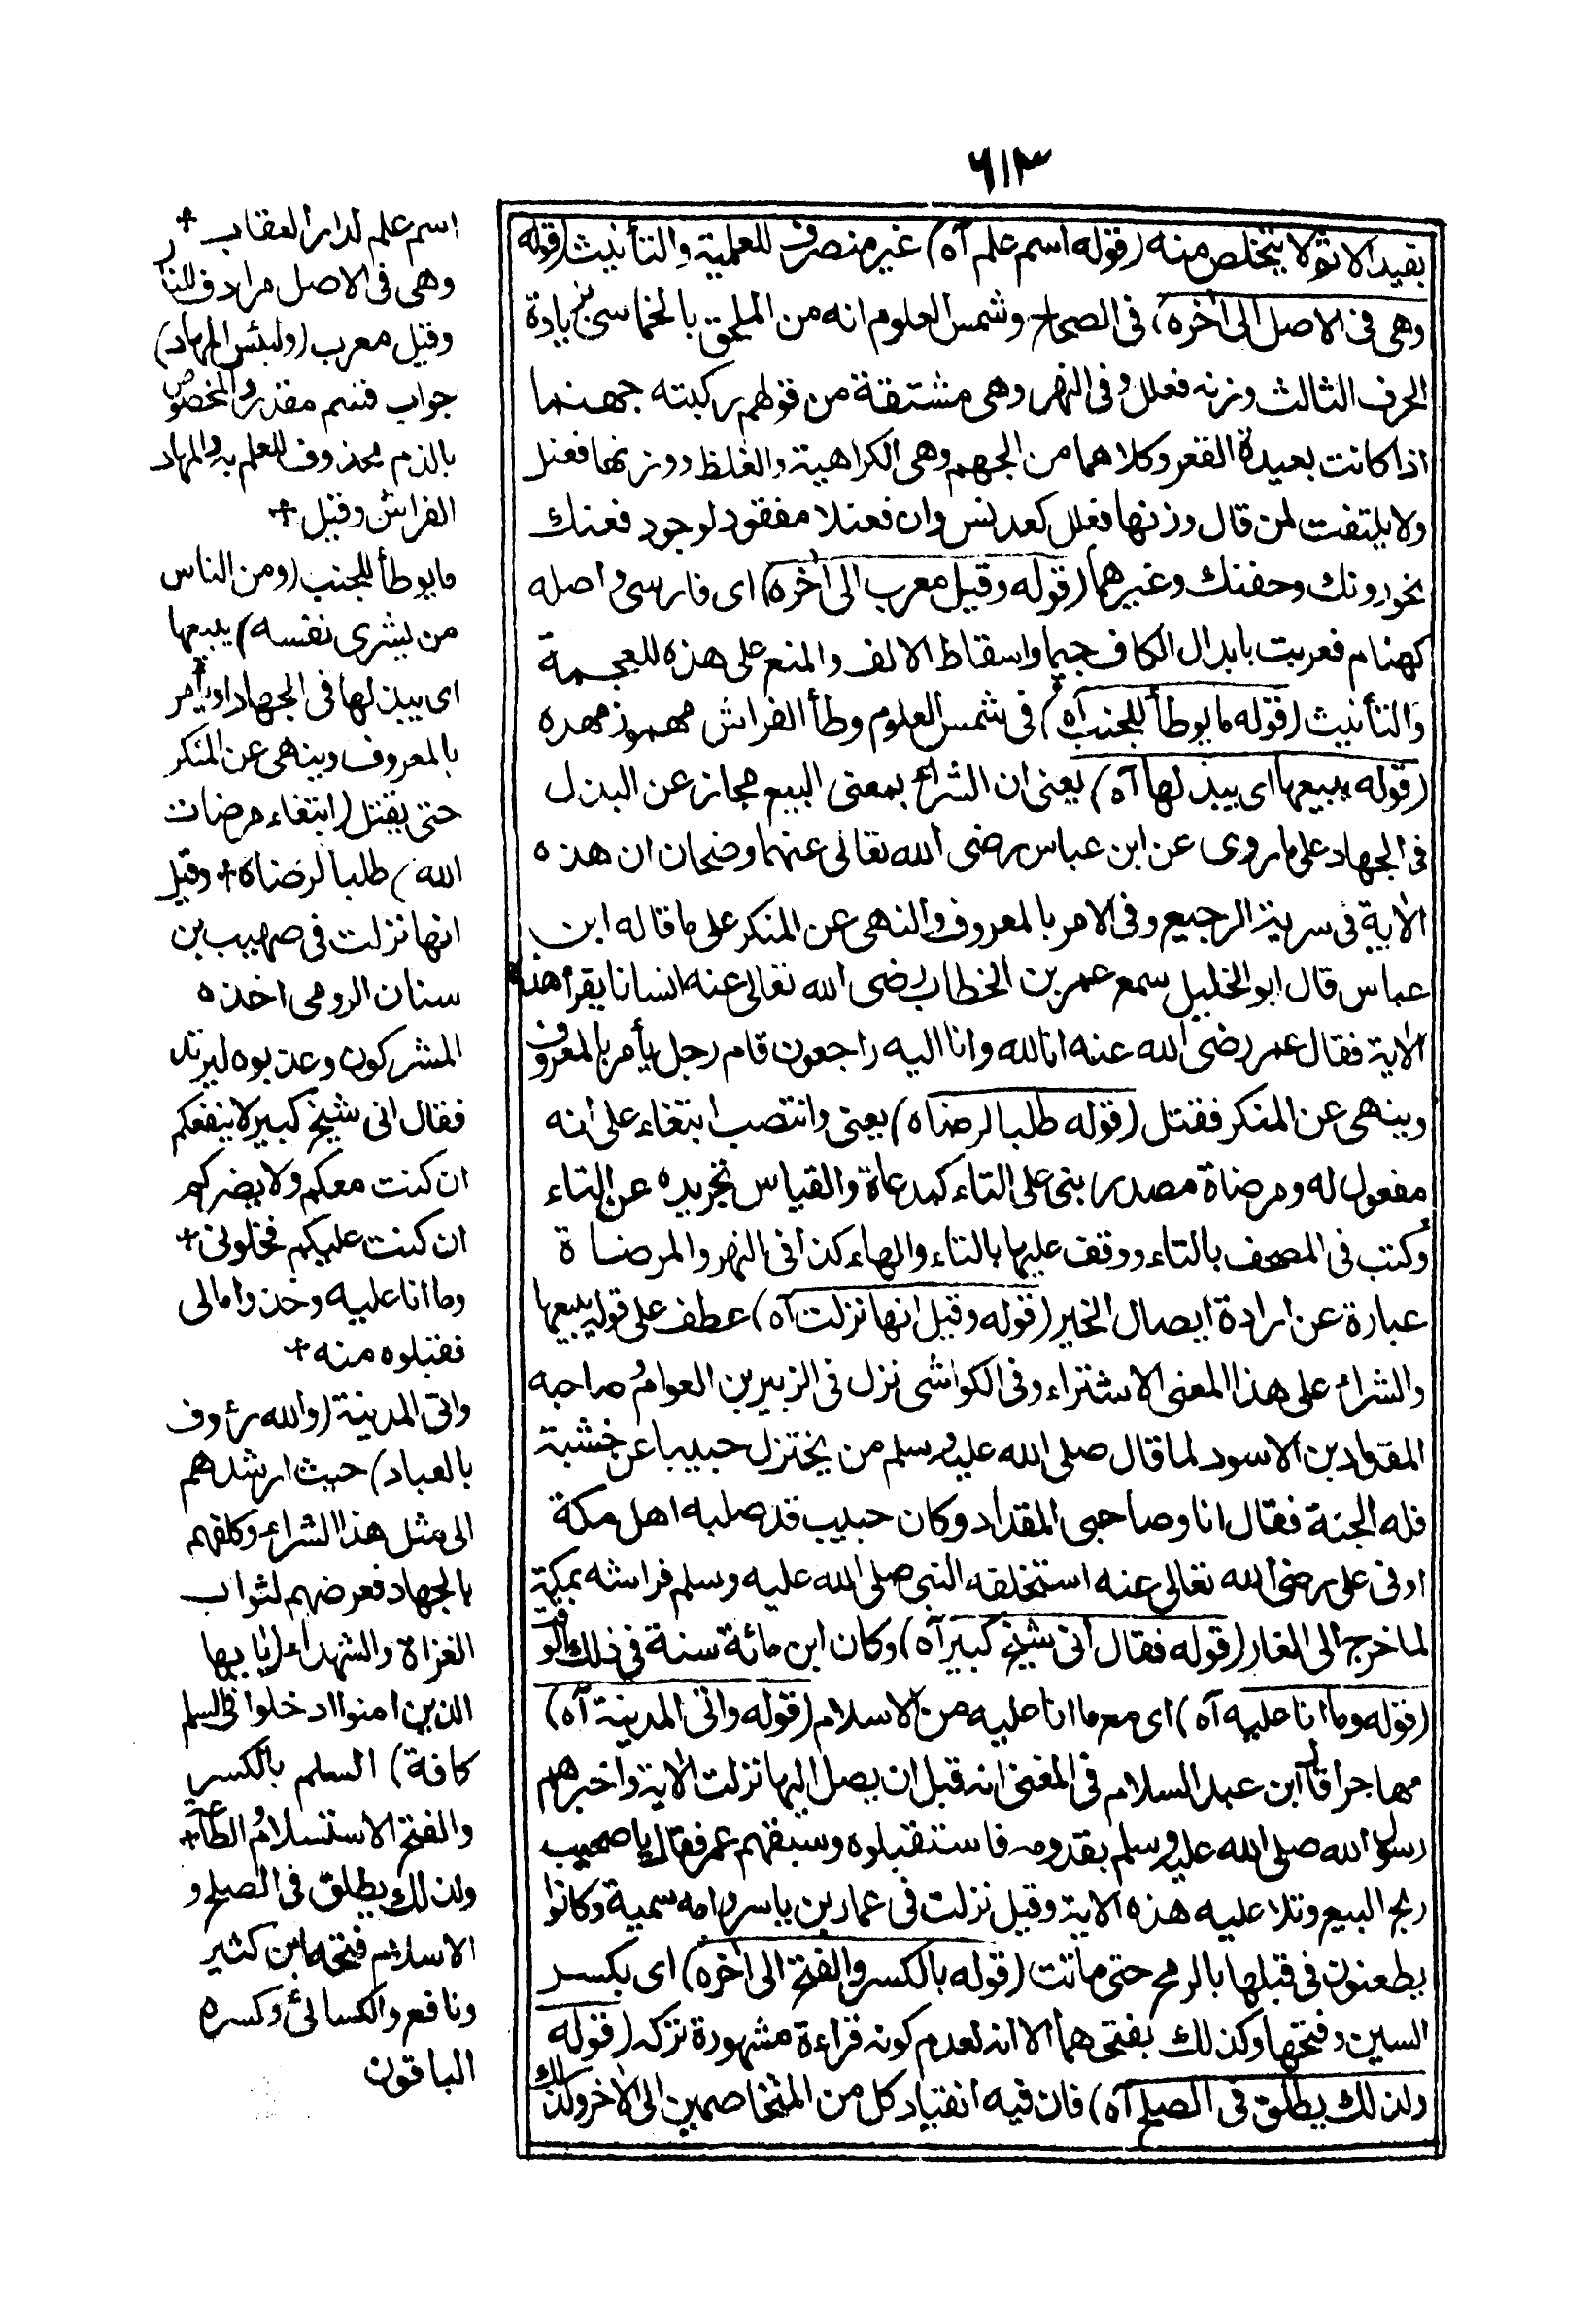 ٦١٣
بقيد الاثم لا يتخلص منه (قوله اسم علم آه) غير منصرف للعلمية والتأنيث (قوله
وهي في الاصل الى آخره) في الصحاح وشمس العلوم انه من الملحق بالخماسي بزيادة
الحرف الثالث وزنه فعلل وفى النهر وهى مشتقة من قولهم ركبته جهنما
اذا كانت بعيدة القعر وكلاهما من الجهم وهى الكراهية والغلظ ووزنها فعنل
ولا يلتفت لمن قال وزنها فعلل كعدبس وان فعنلا مفقود لوجود فعنك
نحو دونك وحفنك وغيرهما (قوله وقيل معرب الى آخره) اى فارسى واصله
كهنام فعربت بابدال الكاف جيما واسقاط الالف والمنع على هذه للعجمة
والتأنيث (قوله ما يوطأ للجنب آه) في شمس العلوم وطأ الفراش مهموز مهده
(قوله يبيعها اى يبذلها آه) يعنى ان الشراء بمعنى البيع مجاز عن البذل
فى الجهاد على ما روى عن ابن عباس رضى الله تعالى عنهما وضحان ان هذه
الآية فى سرية الرجيع وفى الامر بالمعروف والنهى عن المنكر على ما قاله ابن
عباس قال ابو الخليل سمع عمر بن الخطاب رضى الله تعالى عنه انسانا يقرأ هذه
الآية فقال عمر رضى الله عنه انا لله وانا اليه راجعون قام رجل يأمر بالمعروف
وينهى عن المنكر فقتل (قوله طلبا لرضاه) يعنى وانتصب ابتغاء على انه
مفعول له ومرضاة مصدر بنى على التاء كمدعاة والقياس تجريده عن التاء
وكتب فى المصحف بالتاء ووقف عليها بالتاء والهاء كذا فى النهر والمرضاة
عبارة عن ارادة ايصال الخير (قوله وقيل انها نزلت آه) عطف على قوله يبيعها
والشراء على هذا المعنى الاشتراء وفى الكواشى نزل فى الزبير بن العوام وصاحبه
المقداد بن الاسود لما قال صلى الله عليه وسلم من يختزل حبيبا عن خشبة
فله الجنة فقال انا وصاحبى المقداد وكان حبيب قد صلبه اهل مكة
او فى على رضى الله تعالى عنه استخلفه النبى صلى الله عليه وسلم فراشه بمكة
لما خرج الى الغار (قوله فقال انى شيخ كبير آه) وكان ابن مائة سنة فى ذلك الوقت
(قوله وما انا عليه آه) اى مع ما انا عليه من الاسلام (قوله واتى المدينة آه)
مهاجرا قال ابن عبد السلام فى المغنى انه قبل ان يصل اليها نزلت الآية واخبرهم
رسول الله صلى الله عليه وسلم بقدومه فاستقبلوه وسبقهم عمر فقال يا صهيب
ربح البيع وتلا عليه هذه الآية وقيل نزلت فى عمار بن ياسر وامه سمية وكانوا
يطعنون فى قبلها بالرمح حتى ماتت (قوله بالكسر والفتح الى آخره) اى بكسر
السين وفتحها وكذلك بفتحهما الا انه لعدم كونه قراءة مشهورة تركه (قوله
ولذلك يطلق فى الصلح آه) فان فيه انقياد كل من المتخاصمين الى الآخر وكذلك
اسم علم لدار العقاب +
وهى فى الاصل مرادف للنار
وقيل معرب (ولبئس المهاد)
جواب قسم مقدر والمخصوص
بالذم محذوف للعلم به والمهاد
الفراش وقيل +
ما يوطأ للجنب (ومن الناس
من يشرى نفسه) يبيعها
اى يبذلها فى الجهاد او يأمر
بالمعروف وينهى عن المنكر
حتى يقتل (ابتغاء مرضات
الله) طلبا لرضاه + وقيل
انها نزلت فى صهيب بن
سنان الرومى اخذه
المشركون وعذبوه ليرتد
فقال انى شيخ كبير لا ينفعكم
ان كنت معكم ولا يضركم
ان كنت عليكم فخلونى +
وما انا عليه وخذوا مالى
فقبلوه منه +
واتى المدينة (والله رؤوف
بالعباد) حيث ارشدهم
الى مثل هذا الشراء وكلفهم
بالجهاد فعرضهم لثواب
الغزاة والشهداء (يا ايها
الذين امنوا ادخلوا فى السلم
كافة) السلم بالكسر
والفتح الاستسلام والطاعة +
ولذلك يطلق فى الصلح و
الاسلام فتحه ابن كثير
ونافع والكسائى وكسره
الباقون